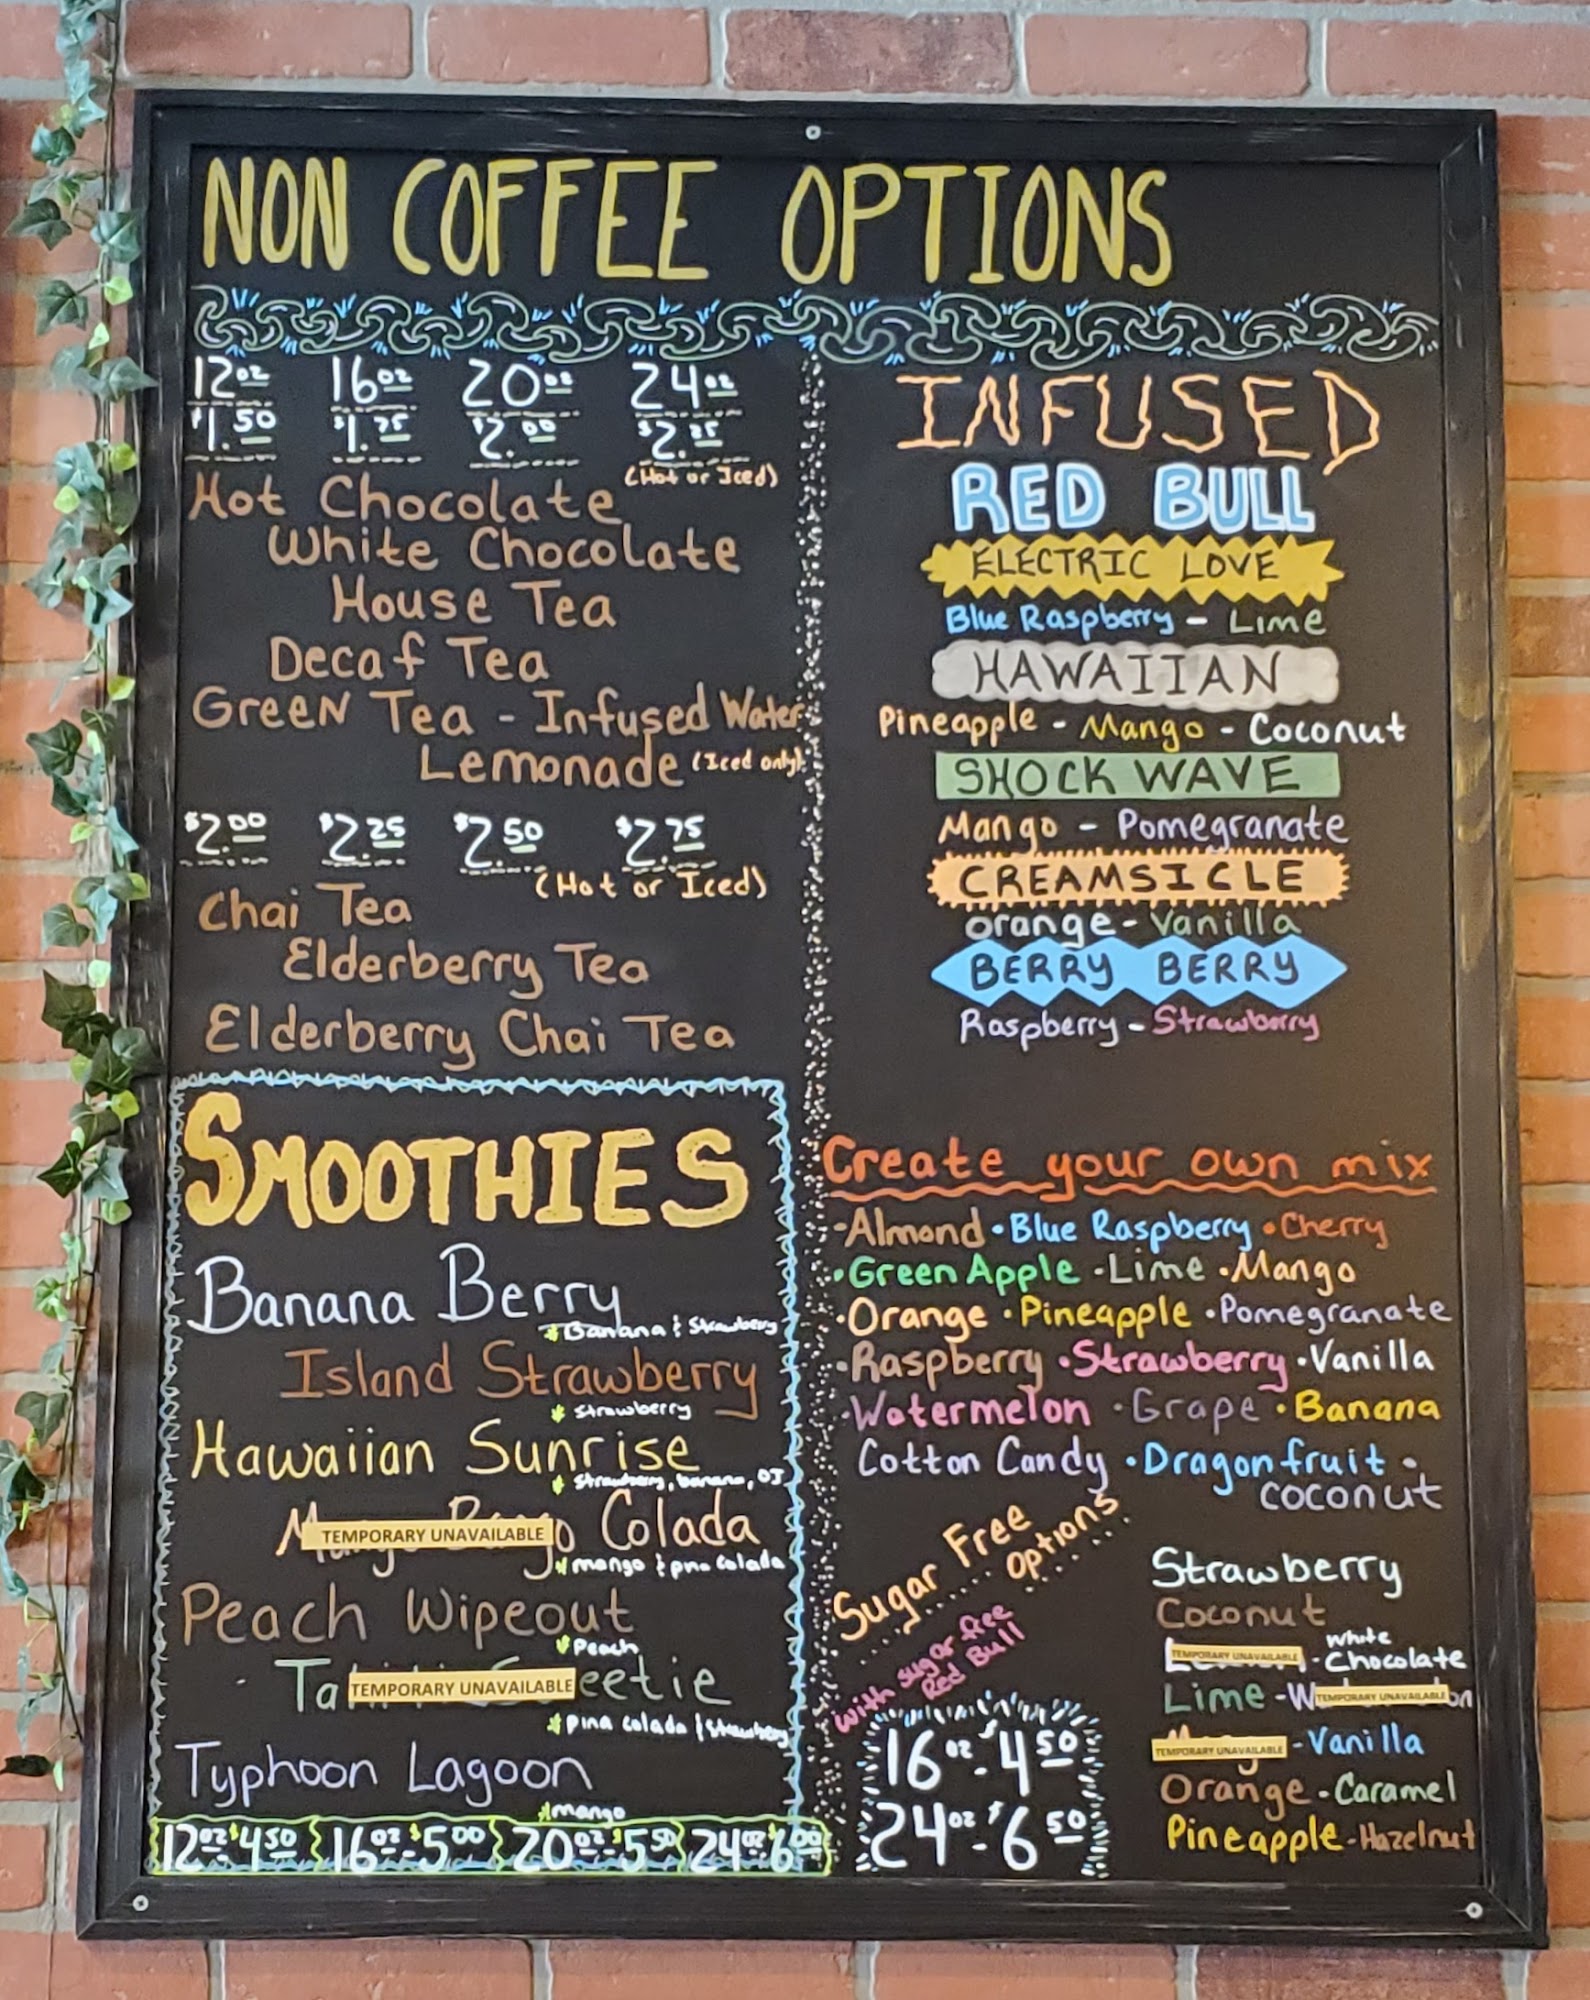 NON COFFEE OPTIONS
12oz 16oz 20oz 24oz
$1.50 $1.75 $2.00 $2.25
(Hot or Iced)
Hot Chocolate
White Chocolate
House Tea
Decaf Tea
Green Tea - Infused Water
Lemonade (Iced only)
$2.00 $2.25 $2.50 $2.75
(Hot or Iced)
Chai Tea
Elderberry Tea
Elderberry Chai Tea
SMOOTHIES
Banana Berry
Banana & Strawberry
Island Strawberry
Strawberry
Hawaiian Sunrise
Strawberry, banana, OJ
TEMPORARY UNAVAILABLE Colada
mango & pina colada
Peach Wipeout
Peach
Ta TEMPORARY UNAVAILABLE eetie
pina colada & Strawberry
Typhoon Lagoon
mango
12oz $4.50 16oz $5.00 20oz $5.50 24oz $6.00
INFUSED
RED BULL
ELECTRIC LOVE
Blue Raspberry - Lime
HAWAIIAN
Pineapple - Mango - Coconut
SHOCK WAVE
Mango - Pomegranate
CREAMSICLE
Orange - Vanilla
BERRY BERRY
Raspberry - Strawberry
Create your own mix
·Almond ·Blue Raspberry ·Cherry
·Green Apple ·Lime ·Mango
·Orange ·Pineapple ·Pomegranate
·Raspberry ·Strawberry ·Vanilla
·Watermelon ·Grape ·Banana
Cotton Candy ·Dragonfruit ·
coconut
Sugar Free
Options
with sugar free
Red Bull
16oz - $4.50
24oz - $6.50
Strawberry
Coconut
TEMPORARY UNAVAILABLE - White
Chocolate
Lime - W TEMPORARY UNAVAILABLE on
TEMPORARY UNAVAILABLE - Vanilla
Orange - Caramel
Pineapple - Hazelnut